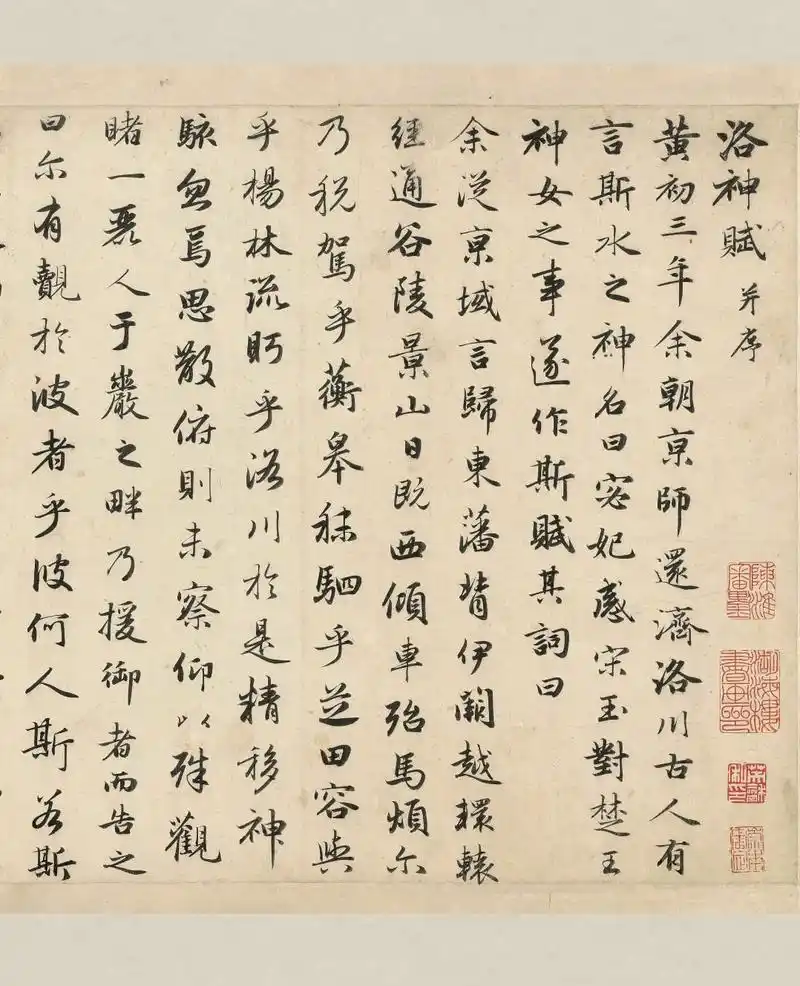 洛神賦 并序
黃初三年余朝京師還濟洛川古人有
言斯水之神名曰宓妃感宋玉對楚王
神女之事遂作斯賦其詞曰
余從京域言歸東藩背伊闕越轘轅
經通谷陵景山日既西傾車殆馬煩尒
乃税駕乎蘅皋秣駟乎芝田容與
乎楊林流眄乎洛川於是精移神
駭忽焉思散俯則未察仰以殊觀
睹一麗人于巖之畔乃援御者而告之
曰尒有覿於彼者乎彼何人斯若斯